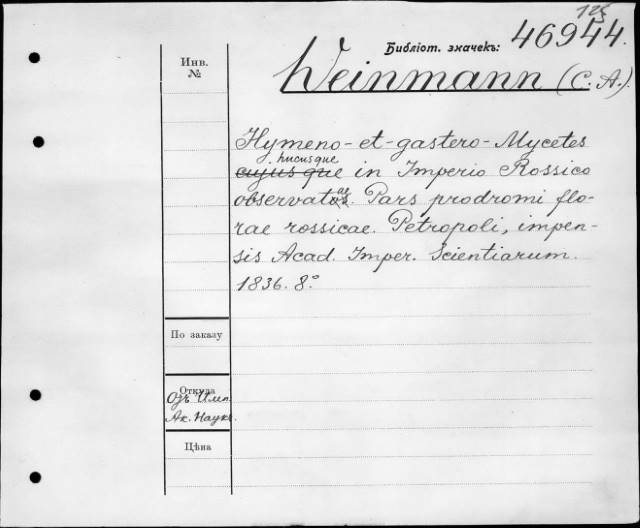 125
Библіот. значекъ: 46944.
Инв.
№
Weinmann (C. A.).
Hymeno-et-gastero-Mycetes
hucusque
cujus que in Imperio Rossico
observatos. ae Pars prodromi flo-
rae rossicae. Petropoli, impen-
sis Acad. Imper. Scientiarum.
1836. 8°
По заказу
Откуда
Отъ Имп.
Ак. Наукъ.
Цѣна